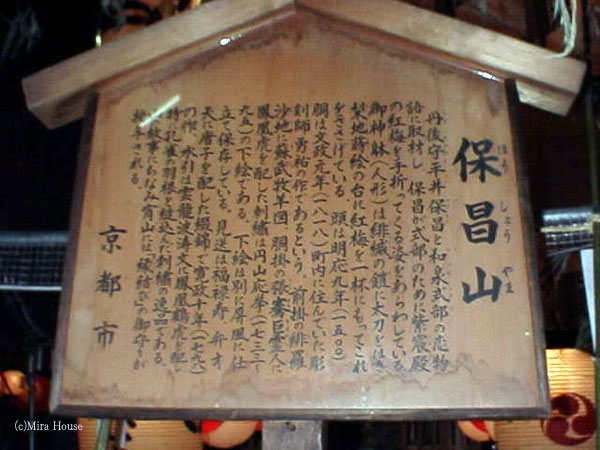 保昌山
ほうしょうやま
丹後守平井保昌と和泉式部の恋物
語に取材し、保昌が式部のために紫宸殿
の紅梅を手折ってくる姿をあらわしている。
御神躰(人形)は緋縅の鎧に太刀をはき
梨地蒔絵の台に紅梅を一杯にもってこれ
をささげている。頭は明応九年(一五〇〇)
胴は文政元年(一八一八)町内に住んでいた彫
刻師勇祐の作であるという。前掛の緋羅
沙地に蘇武牧羊図、胴掛の張騫巨霊人に
鳳凰虎を配した刺繍は円山応挙(一七三三-
九五)の下絵である。下絵は別に屏風に仕
立て保存している。見送は福禄寿 弁才
天に唐子を配した綴錦で寛政十年(一七九八)
の作、水引は雲龍波涛文に鳳凰鶴虎を配し
特に孔雀の羽根を縫込んだ刺繍の逸品である。
故事にちなみ宵山には「縁結び」の御守りが
授与される。
京都市
(c)Mira House